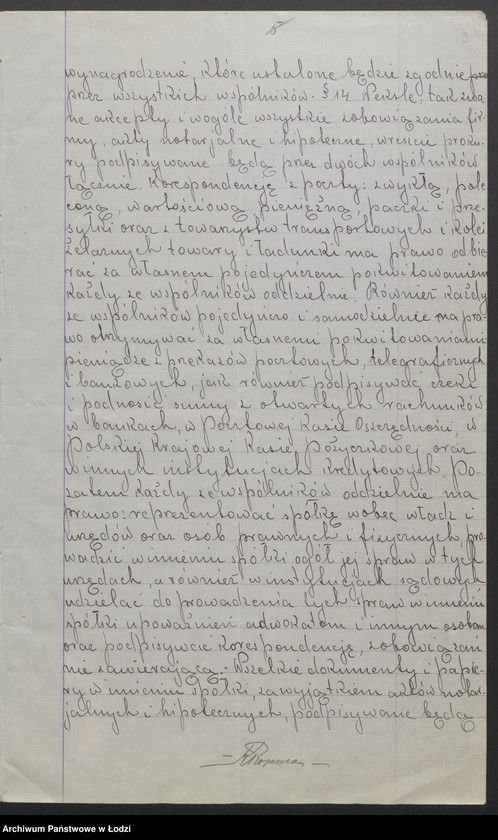 3
wynagrodzenie, które ustalone będzie zgodnie prze
przez wszystkich wspólników. § 14. Weksle, tak zwa-
ne akcepty i wogóle wszystkie zobowiązania fir-
my, akty notarjalne i hipoteczne, wreszcie proku-
ry podpisywane będą przez dwóch wspólników
łącznie. Korespondencję z poczty: zwykłą, pole-
coną, wartościową, pieniężną, paczki i prze-
syłki oraz z towarzystw transportowych i kolei
żelaznych towary i ładunki ma prawo odbie-
rać za własnem pojedyńczem pokwitowaniem
każdy ze wspólników oddzielnie. Również każdy
ze wspólników pojedyńczo i samodzielnie ma pra-
wo otrzymywać za własnemi pokwitowaniami
pieniądze z przekazów pocztowych, telegraficznych
i bankowych, jak również podpisywać czeki
i podnosić sumy z otwartych rachunków
w bankach, w Pocztowej Kasie Oszczędności, w
Polskiej Krajowej Kasie Pożyczkowej oraz
w innych instytucjach kredytowych. Po-
zatem każdy ze wspólników oddzielnie ma
prawo: reprezentować spółkę wobec władz i
urzędów oraz osób prawnych i fizycznych, pro-
wadzić w imieniu spółki ogół jej spraw w tych
urzędach, a również w instytucjach sądowych
udzielać do prowadzenia tych spraw w imieniu
spółki upoważnień adwokatom i innym osobom
oraz podpisywać korespondencję, zobowiązań
nie zawierającą. Wszelkie dokumenty i papie-
ry w imieniu spółki, za wyjątkiem aktów nota-
rjalnych i hipotecznych, podpisywane będą
Archiwum Państwowe w Łodzi